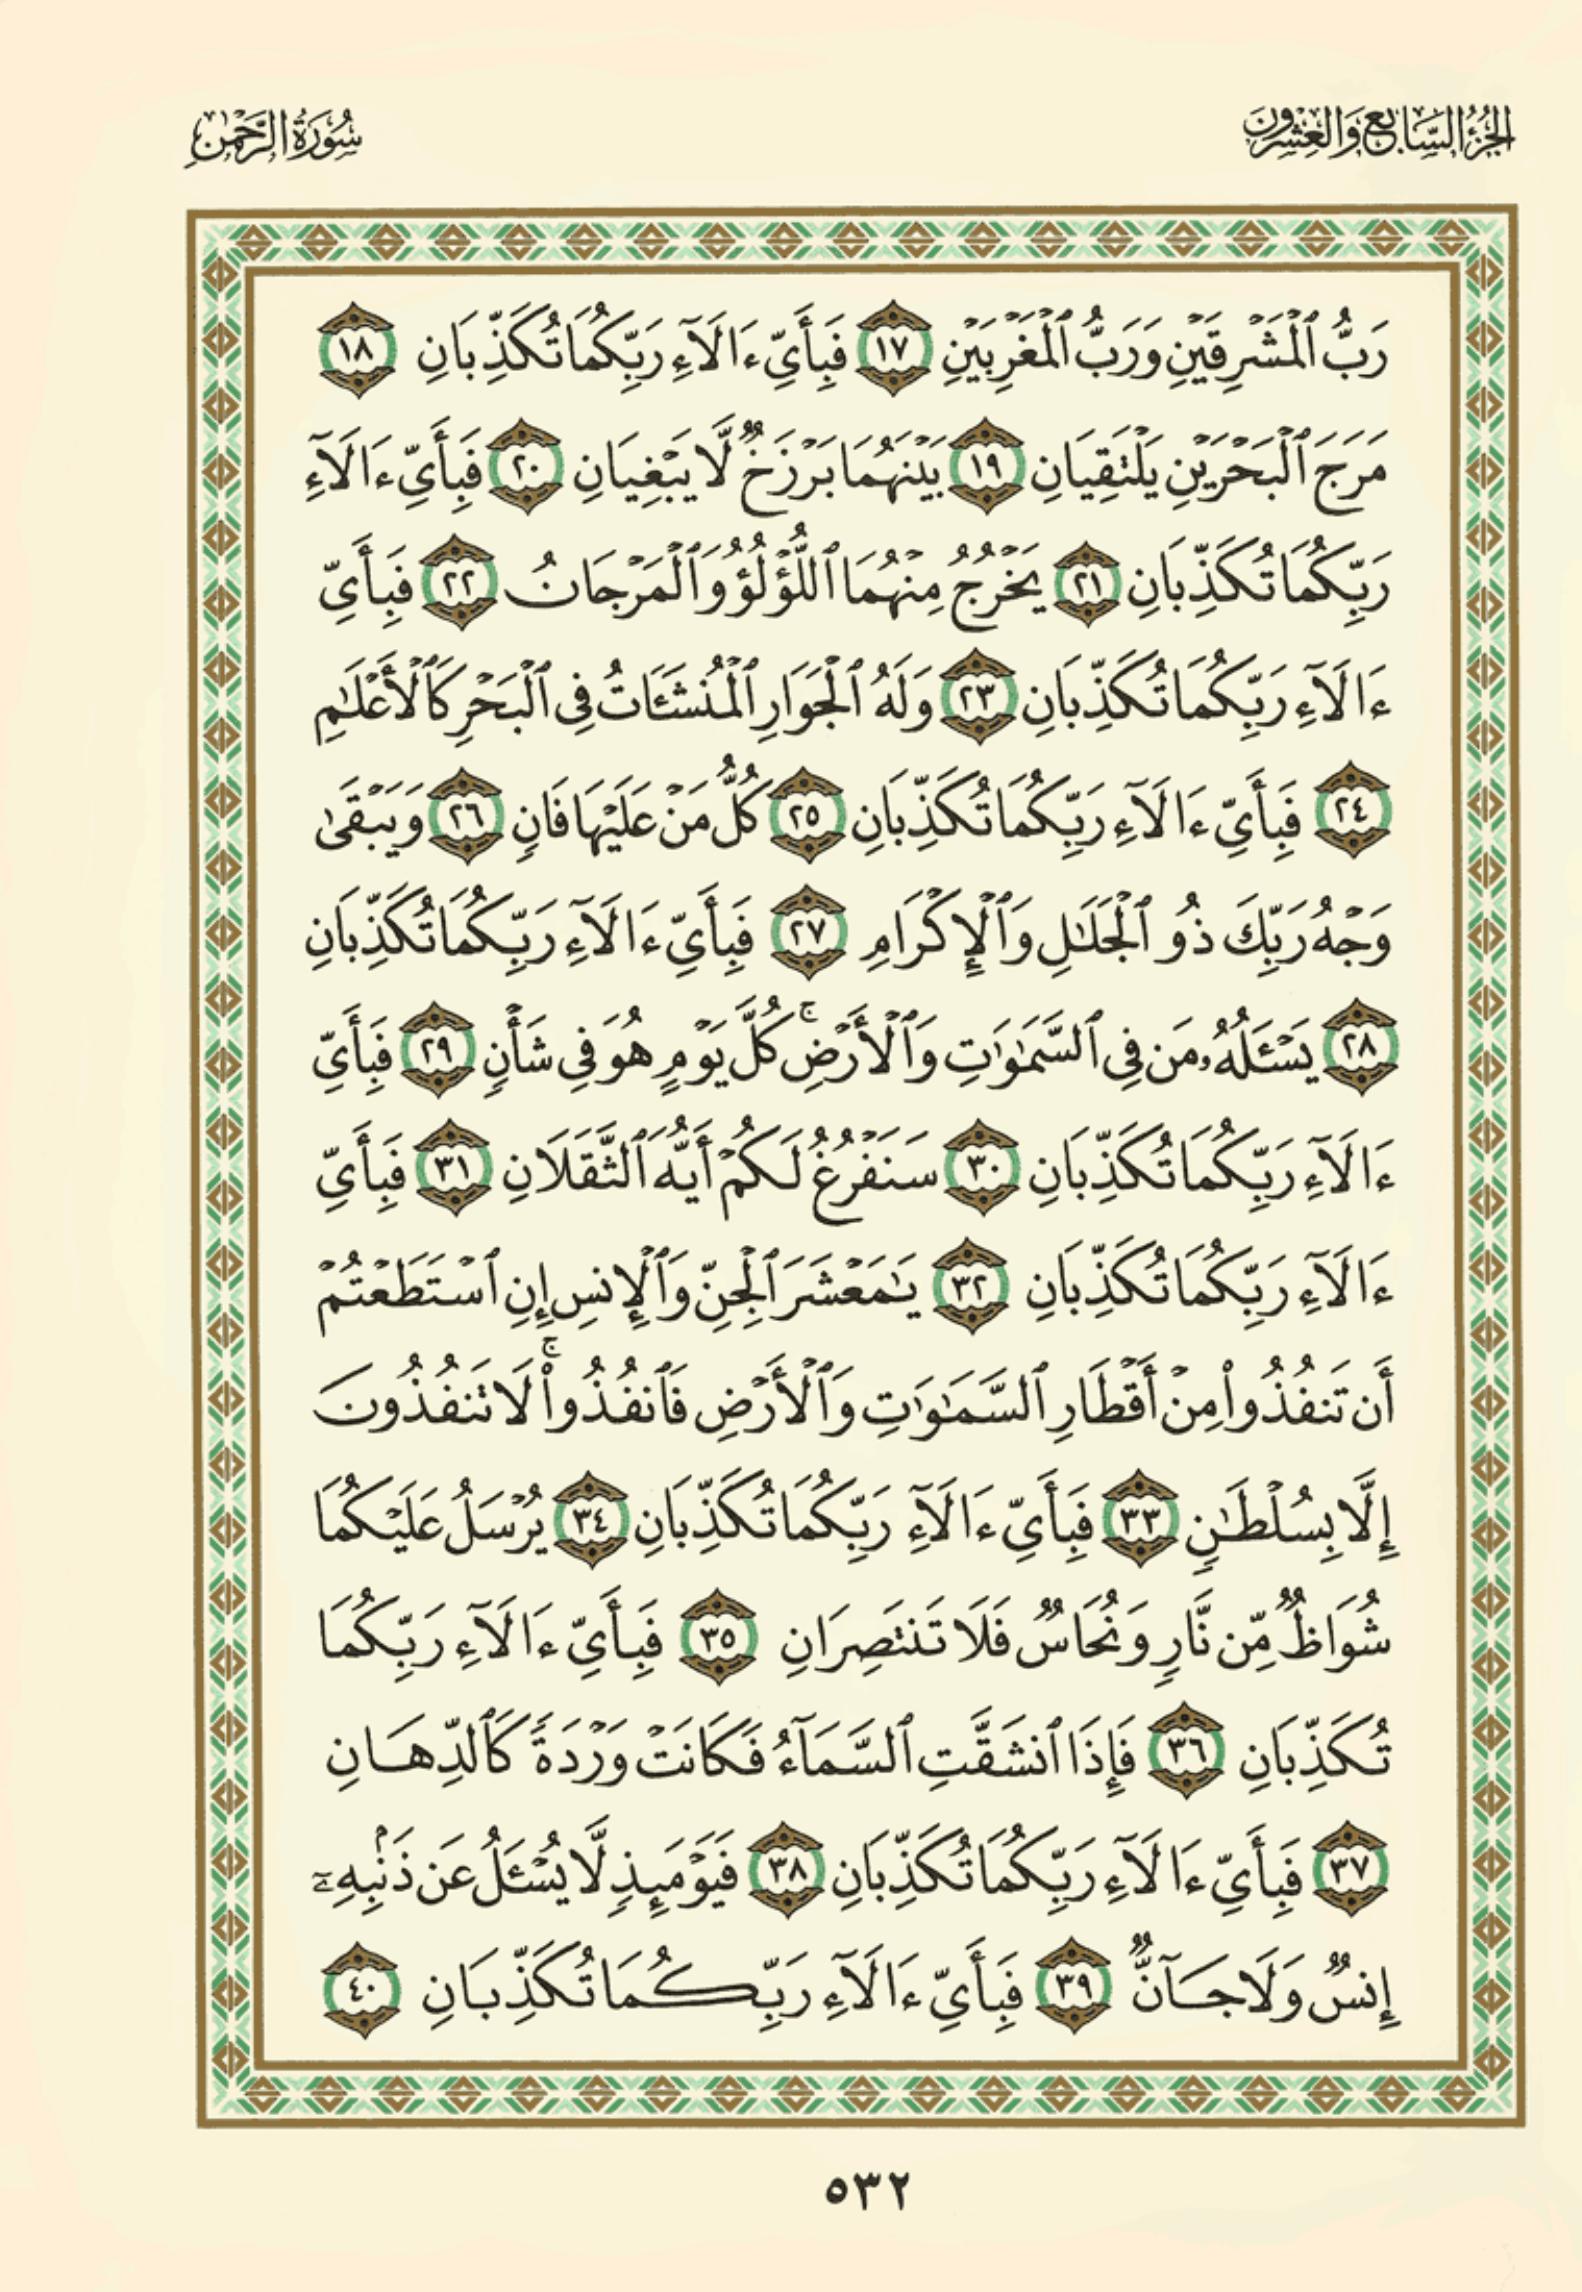 الجُزْءُ السَّابِعُ وَالعِشْرُونَ
سُورَةُ الرَّحْمَٰنِ
رَبُّ ٱلْمَشْرِقَيْنِ وَرَبُّ ٱلْمَغْرِبَيْنِ ١٧ فَبِأَيِّ ءَالَآءِ رَبِّكُمَا تُكَذِّبَانِ ١٨
مَرَجَ ٱلْبَحْرَيْنِ يَلْتَقِيَانِ ١٩ بَيْنَهُمَا بَرْزَخٌ لَّا يَبْغِيَانِ ٢٠ فَبِأَيِّ ءَالَآءِ
رَبِّكُمَا تُكَذِّبَانِ ٢١ يَخْرُجُ مِنْهُمَا ٱللُّؤْلُؤُ وَٱلْمَرْجَانُ ٢٢ فَبِأَيِّ
ءَالَآءِ رَبِّكُمَا تُكَذِّبَانِ ٢٣ وَلَهُ ٱلْجَوَارِ ٱلْمُنشَـَٔاتُ فِى ٱلْبَحْرِ كَٱلْأَعْلَٰمِ
٢٤ فَبِأَيِّ ءَالَآءِ رَبِّكُمَا تُكَذِّبَانِ ٢٥ كُلُّ مَنْ عَلَيْهَا فَانٍ ٢٦ وَيَبْقَىٰ
وَجْهُ رَبِّكَ ذُو ٱلْجَلَٰلِ وَٱلْإِكْرَامِ ٢٧ فَبِأَيِّ ءَالَآءِ رَبِّكُمَا تُكَذِّبَانِ
٢٨ يَسْـَٔلُهُۥ مَن فِى ٱلسَّمَٰوَٰتِ وَٱلْأَرْضِ ۚ كُلَّ يَوْمٍ هُوَ فِى شَأْنٍ ٢٩ فَبِأَيِّ
ءَالَآءِ رَبِّكُمَا تُكَذِّبَانِ ٣٠ سَنَفْرُغُ لَكُمْ أَيُّهَ ٱلثَّقَلَانِ ٣١ فَبِأَيِّ
ءَالَآءِ رَبِّكُمَا تُكَذِّبَانِ ٣٢ يَٰمَعْشَرَ ٱلْجِنِّ وَٱلْإِنسِ إِنِ ٱسْتَطَعْتُمْ
أَن تَنفُذُوا۟ مِنْ أَقْطَارِ ٱلسَّمَٰوَٰتِ وَٱلْأَرْضِ فَٱنفُذُوا۟ ۚ لَا تَنفُذُونَ
إِلَّا بِسُلْطَٰنٍ ٣٣ فَبِأَيِّ ءَالَآءِ رَبِّكُمَا تُكَذِّبَانِ ٣٤ يُرْسَلُ عَلَيْكُمَا
شُوَاظٌ مِّن نَّارٍ وَنُحَاسٌ فَلَا تَنتَصِرَانِ ٣٥ فَبِأَيِّ ءَالَآءِ رَبِّكُمَا
تُكَذِّبَانِ ٣٦ فَإِذَا ٱنشَقَّتِ ٱلسَّمَآءُ فَكَانَتْ وَرْدَةً كَٱلدِّهَانِ
٣٧ فَبِأَيِّ ءَالَآءِ رَبِّكُمَا تُكَذِّبَانِ ٣٨ فَيَوْمَئِذٍ لَّا يُسْـَٔلُ عَن ذَنۢبِهِۦٓ
إِنسٌ وَلَا جَآنٌّ ٣٩ فَبِأَيِّ ءَالَآءِ رَبِّكُمَا تُكَذِّبَانِ ٤٠
٥٣٢